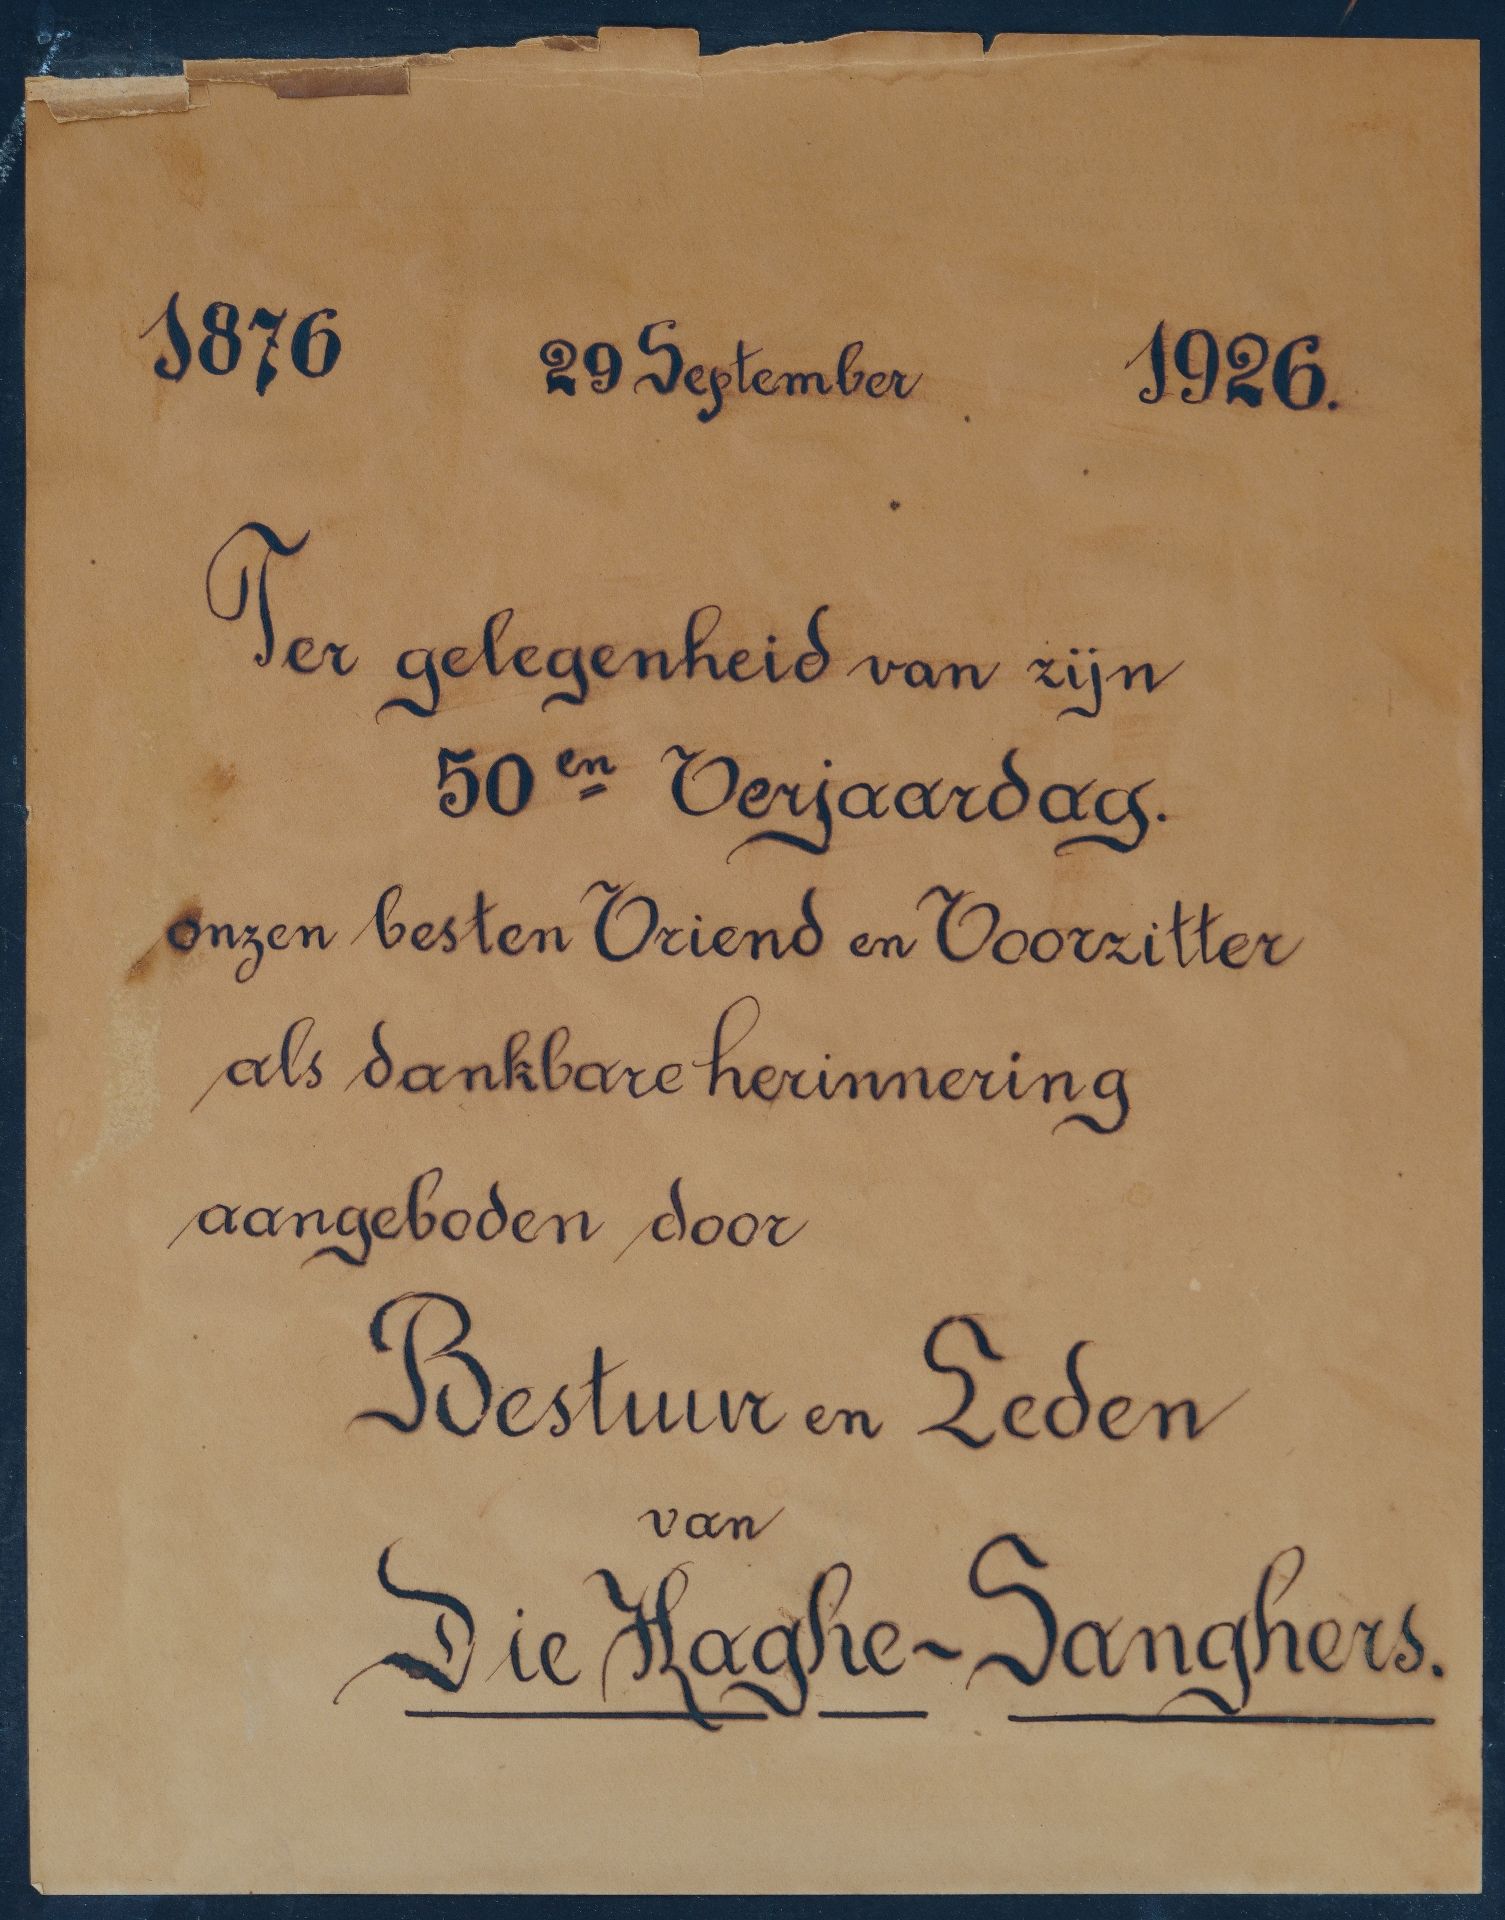 1876 29 September 1926.
Ter gelegenheid van zijn
50en Verjaardag.
onzen besten Vriend en Voorzitter
als dankbare herinnering
aangeboden door
Bestuur en Leden
van
Die Haghe-Sanghers.